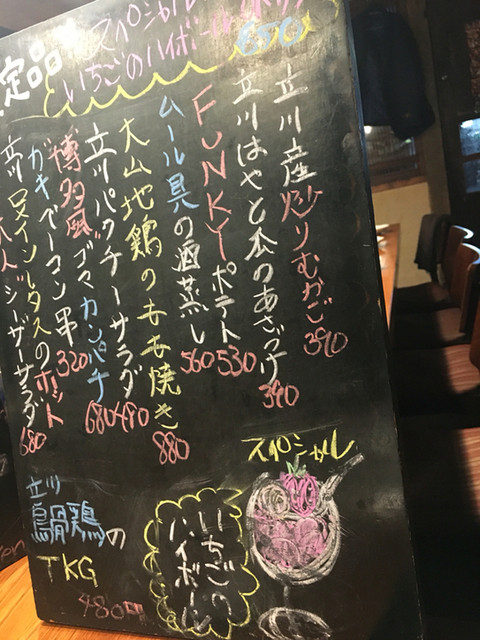 定品
スペシャル
いちごのハイボール
650
立川産炒りむかご 390
立川はやと瓜のあさづけ 390
FUNKYポテト 530
ムール貝の酒蒸し 560
大山地鶏のもも焼き 880
立川パクチーサラダ 490
博多風ゴマカンパチ 680
ガキデーコン串 320
立川ロメインレタスのホット
シーザーサラダ 680
スペシャル
いちごの
ハイボール
立川
烏骨鶏の
TKG
480円